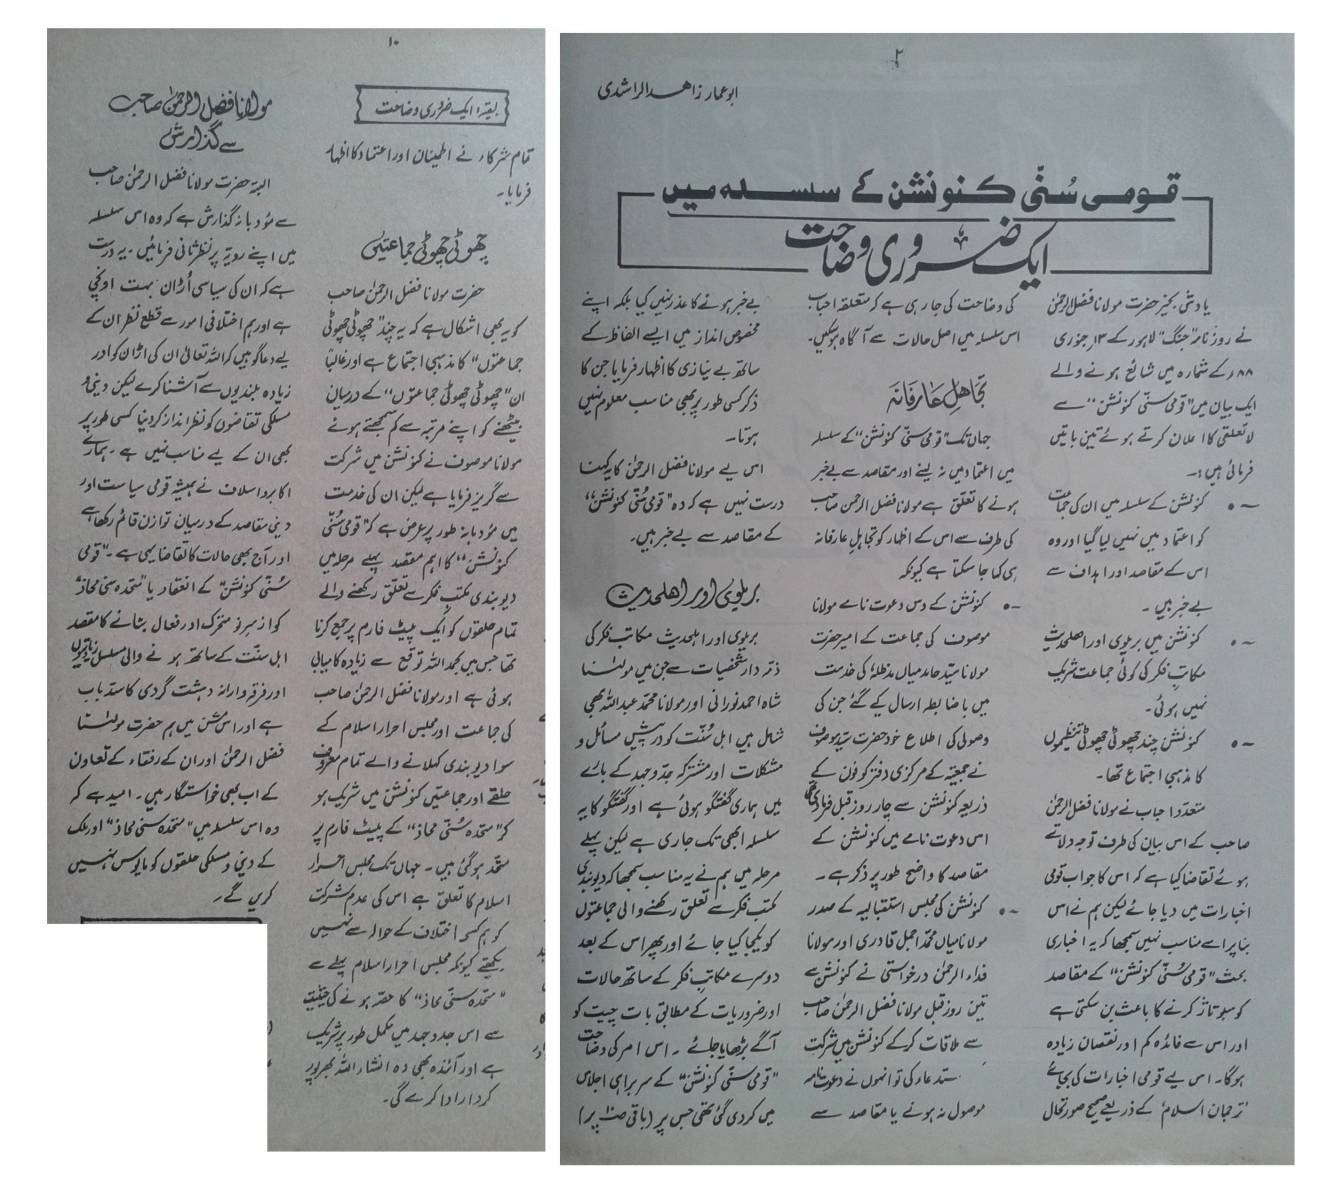 ۲
ابو عمار زاہد الراشدی
قومی سُنّی کنونشن کے سلسلہ میں
ایک ضروری وضاحت
یادش بخیر حضرت مولانا فضل الرحمٰن
نے روزنامہ "جنگ" لاہور کے ۱۳ جنوری
۸۸ء کے شمارہ میں شائع ہونے والے
ایک بیان میں "قومی سنی کنونشن" سے
لاتعلقی کا اعلان کرتے ہوئے تین باتیں
فرمائی ہیں:۔
● کنونشن کے سلسلہ میں ان کی جماعت
کو اعتماد میں نہیں لیا گیا اور وہ
اس کے مقاصد اور اہداف سے
بے خبر ہیں۔
● کنونشن میں بریلوی اور اہلحدیث
مکاتب فکر کی کوئی جماعت شریک
نہیں ہوئی۔
● کنونشن چند چھوٹی چھوٹی تنظیموں
کا مذہبی اجتماع تھا۔
متعدد احباب نے مولانا فضل الرحمٰن
صاحب کے اس بیان کی طرف توجہ دلاتے
ہوئے تقاضا کیا ہے کہ اس کا جواب قومی
اخبارات میں دیا جائے لیکن ہم نے اس
بنا پر اسے مناسب نہیں سمجھا کہ یہ اخباری
بحث "قومی سُنّی کنونشن" کے مقاصد
کو سبوتاژ کرنے کا باعث بن سکتی ہے
اور اس سے فائدہ کم اور نقصان زیادہ
ہوگا۔ اس لیے قومی اخبارات کی بجائے
"ترجمان اسلام" کے ذریعے صحیح صورتحال
کی وضاحت کی جارہی ہے کہ متعلقہ احباب
اس سلسلہ میں اصل حالات سے آگاہ ہوسکیں۔
تجاہلِ عارفانہ
جہاں تک "قومی سنی کنونشن" کے سلسلہ
میں اعتماد میں نہ لینے اور مقاصد سے بے خبر
ہونے کا تعلق ہے مولانا فضل الرحمٰن صاحب
کی طرف سے اس کے اظہار کو تجاہلِ عارفانہ
ہی کہا جا سکتا ہے کیونکہ
● کنونشن کے دس دعوت نامے مولانا
موصوف کی جماعت کے امیر حضرت
مولانا سید حامد میاں مدظلہٗ کی خدمت
میں باضابطہ ارسال کیے گئے جن کی
وصولی کی اطلاع خود حضرت سید موصوف
نے جمعیۃ کے مرکزی دفتر کو فون کے
ذریعہ کنونشن سے چار روز قبل فرمادی تھی
اس دعوت نامے میں کنونشن کے
مقاصد کا واضح طور پر ذکر ہے۔
● کنونشن کی مجلس استقبالیہ کے صدر
مولانا میاں محمد اجمل قادری اور مولانا
فداء الرحمٰن درخواستی نے کنونشن سے
تین روز قبل مولانا فضل الرحمٰن صاحب
سے ملاقات کرکے کنونشن میں شرکت
کی استدعا کی تو انہوں نے دعوت نامہ
موصول نہ ہونے یا مقاصد سے
بے خبر ہونے کا عذر نہیں کیا بلکہ اپنے
مخصوص انداز میں ایسے الفاظ کے
ساتھ بے نیازی کا اظہار فرمایا جن کا
ذکر کسی طور پر بھی مناسب معلوم نہیں
ہوتا۔
اس لیے مولانا فضل الرحمٰن کا یہ کہنا
درست نہیں ہے کہ وہ "قومی سُنّی کنونشن"
کے مقاصد سے بے خبر ہیں۔
بریلوی اور اہلحدیث
بریلوی اور اہلحدیث مکاتب فکر کی
ذمہ دار شخصیات سے جن میں مولانا
شاہ احمد نورانی اور مولانا محمد عبداللہ بھی
شامل ہیں اہل سُنّت کو درپیش مسائل و
مشکلات اور مشترکہ جدوجہد کے بارے
میں ہماری گفتگو ہوئی ہے اور گفتگو کا یہ
سلسلہ ابھی تک جاری ہے لیکن پہلے
مرحلہ میں ہم نے یہ مناسب سمجھا کہ دیوبندی
مکتب فکر سے تعلق رکھنے والی جماعتوں
کو یکجا کیا جائے اور پھر اس کے بعد
دوسرے مکاتب فکر کے ساتھ حالات
اور ضروریات کے مطابق بات چیت کو
آگے بڑھایا جائے۔ اس امر کی وضاحت
"قومی سنی کنونشن" کے سربراہی اجلاس
میں کردی گئی تھی جس پر (باقی صنا پر)
۱۰
بقیہ: ایک ضروری وضاحت
تمام شرکاء نے اطمینان اور اعتماد کا اظہار
فرمایا۔
چھوٹی چھوٹی جماعتیں
حضرت مولانا فضل الرحمٰن صاحب
کو یہ بھی اشکال ہے کہ یہ چند "چھوٹی چھوٹی
جماعتوں" کا مذہبی اجتماع ہے اور غالباً
ان "چھوٹی چھوٹی جماعتوں" کے درمیان
بیٹھنے کو اپنے مرتبہ سے کم سمجھتے ہوئے
مولانا موصوف نے کنونشن میں شرکت
سے گریز فرمایا ہے لیکن ان کی خدمت
میں مؤدبانہ طور پر عرض ہے کہ "قومی سُنّی
کنونشن" کا اہم مقصد پہلے مرحلہ میں
دیوبندی مکتب فکر سے تعلق رکھنے والے
تمام حلقوں کو ایک پلیٹ فارم پر جمع کرنا
تھا جس میں بحمد اللہ توقع سے زیادہ کامیابی
ہوئی ہے اور مولانا فضل الرحمٰن صاحب
کی جماعت اور مجلس احرار اسلام کے
سوا دیوبندی کہلانے والے تمام معروف
حلقے اور جماعتیں کنونشن میں شریک ہو
کر "متحدہ سُنّی محاذ" کے پلیٹ فارم پر
متحد ہوگئی ہیں۔ جہاں تک مجلس احرار
اسلام کا تعلق ہے اس کی عدم شرکت
کو ہم کسی اختلاف کے حوالہ سے نہیں
دیکھتے کیونکہ مجلس احرار اسلام پہلے سے
"متحدہ سنی محاذ" کا حصہ ہونے کی حیثیت
سے اس جدوجہد میں مکمل طور پر شریک
ہے اور آئندہ بھی وہ انشاء اللہ بھرپور
کردار ادا کرے گی۔
مولانا فضل الرحمٰن صاحب
سے گذارش
البتہ حضرت مولانا فضل الرحمٰن صاحب
سے مؤدبانہ گذارش ہے کہ وہ اس سلسلہ
میں اپنے رویہ پر نظر ثانی فرمائیں۔ یہ درست
ہے کہ ان کی سیاسی اُڑان بہت اونچی
ہے اور ہم اختلافی امور سے قطع نظر ان کے
لیے دعاگو ہیں کہ اللہ تعالیٰ ان کی اڑان کو اور
زیادہ بلندیوں سے آشنا کرے لیکن دینی و
مسلکی تقاضوں کو نظر انداز کردینا کسی طور پر
بھی ان کے لیے مناسب نہیں ہے۔ ہمارے
اکابر و اسلاف نے ہمیشہ قومی سیاست اور
دینی مقاصد کے درمیان توازن قائم رکھا ہے
اور آج بھی حالات کا تقاضا یہی ہے۔ "قومی
سُنّی کنونشن" کے انعقاد یا "متحدہ سنی محاذ"
کو از سرنو متحرک اور فعال بنانے کا مقصد
اہل سنت کے ساتھ ہونے والی مسلسل زیادتیوں
اور فرقہ وارانہ دہشت گردی کا سدباب
ہے اور اس مشن میں ہم حضرت مولانا
فضل الرحمٰن اور ان کے رفقاء کے تعاون
کے اب بھی خواستگار ہیں۔ امید ہے کہ
وہ اس سلسلہ میں "متحدہ سنی محاذ" اور ملک
کے دینی و مسلکی حلقوں کو مایوس نہیں
کریں گے۔